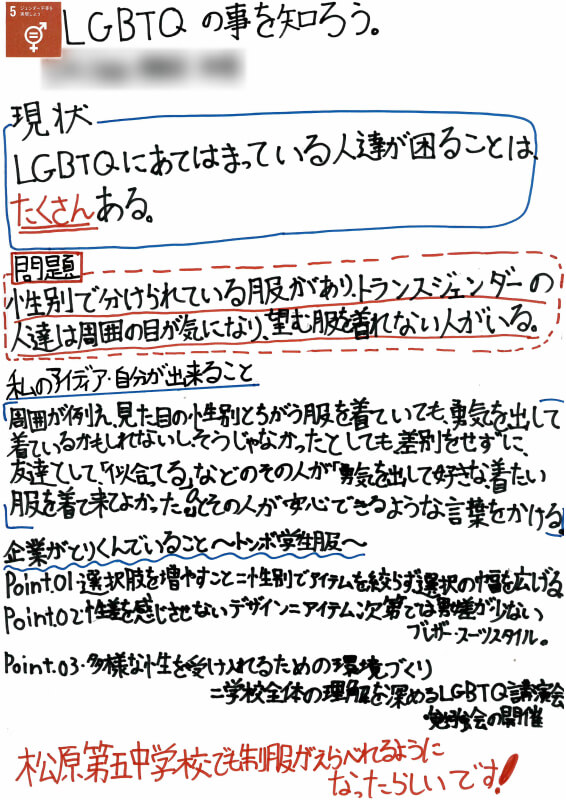 5 ジェンダー平等を
実現しよう
LGBTQの事を知ろう。
現状
LGBTQにあてはまっている人達が困ることは、
たくさんある。
問題
性別で分けられている服があり、トランスジェンダーの
人達は周囲の目が気になり、望む服を着れない人がいる。
私のアイディア・自分が出来ること
周囲が例え、見た目の性別とちがう服を着ていても、勇気を出して
着ているかもしれないし、そうじゃなかったとしても差別をせずに、
友達として、「似合ってる」などのその人が「勇気を出して好きな着たい
服を着て来てよかった」とその人が安心できるような言葉をかける。
企業がとりくんでいること〜トンボ学生服〜
Point.01 選択肢を増やすこと=性別でアイテムを絞らず選択の幅を広げる
Point.02・性差を感じさせないデザイン=アイテム次第では男女差が少ない
ブレザー・スーツスタイル。
Point.03・多様な性を受け入れるための環境づくり
=学校全体の理解を深めるLGBTQ講演会
・勉強会の開催
松原第五中学校でも制服がえらべれるように
なったらしいです!